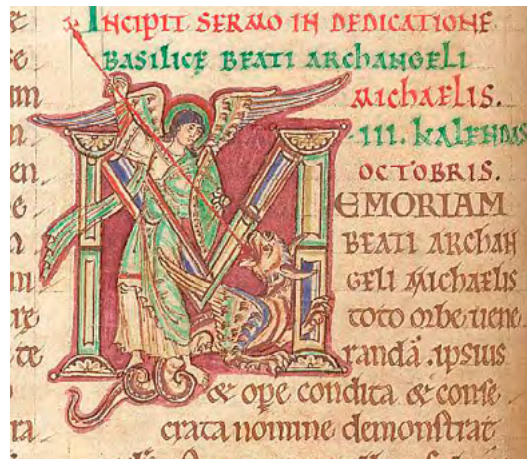 INCIPIT SERMO IN DEDICATIONE
BASILICĘ BEATI ARCHANGELI
MICHAELIS.
III. KALENDAS
OCTOBRIS.
MEMORIAM
BEATI ARCHAN
GELI MICHAELIS
toto orbe uene
randā. ipsius
& ope condita & conse
crata nomine demonstrat